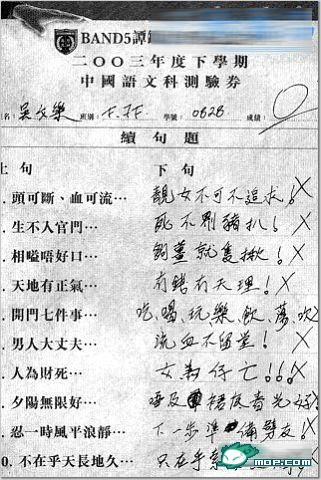 BAND5譚
二〇〇三年度下學期
中國語文科測驗券
名: 吳文樂 班別: F.3F 學號: 0626 成績: 0
續句題
上句 下句
. 頭可斷、血可流… 靚女不可不追求! X
. 生不入官門… 死不劏豬扒! X
. 相嗌唔好口… X
. 天地有正氣… 有錢有天理! X
. 開門七件事… 吃、喝、玩、樂、飲、蕩、吹
. 男人大丈夫… 流血不留堂! X
. 人為財死… 女為仔亡!!! X
. 夕陽無限好… 唔及
. 忍一時風平浪靜… 下一步準備劈友! X
0. 不在乎天長地久… 只在乎
mop.com